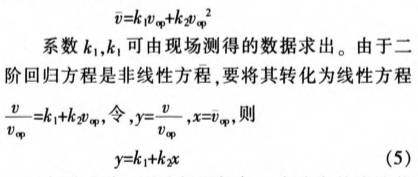 v̄=k₁v_op+k₂v_op²
系数 k₁,k₁ 可由现场测得的数据求出。由于二
阶回归方程是非线性方程,要将其转化为线性方程
v/v_op=k₁+k₂v_op,令,y=v/v_op,x=v̄_op,则
y=k₁+k₂x (5)